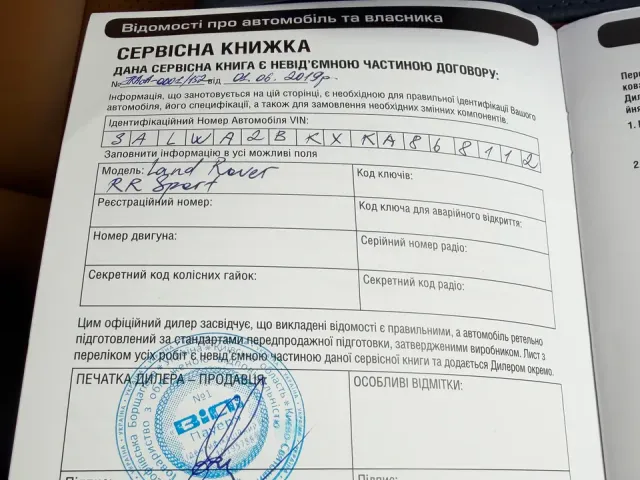 Відомості про автомобіль та власника
СЕРВІСНА КНИЖКА
ДАНА СЕРВІСНА КНИГА Є НЕВІД'ЄМНОЮ ЧАСТИНОЮ ДОГОВОРУ:
№ від 01.06.2019р.
Інформація, що занотовується на цій сторінці, є необхідною для правильної ідентифікації Вашого
автомобіля, його специфікації, а також для замовлення необхідних змінних компонентів.
Ідентифікаційний Номер Автомобіля VIN:
SALWA2BKXKA868112
Заповнити інформацію в усі можливі поля
Модель: Land Rover
RR Sport
Код ключів:
Реєстраційний номер:
Код ключа для аварійного відкриття:
Номер двигуна:
Серійний номер радіо:
Секретний код колісних гайок:
Секретний код радіо:
Цим офіційний дилер засвідчує, що викладені відомості є правильними, а автомобіль ретельно
підготовлений за стандартами передпродажної підготовки, затвердженими виробником. Лист з
переліком усіх робіт є невід'ємною частиною даної сервісної книги та додається Дилером окремо.
ПЕЧАТКА ДИЛЕРА – ПРОДАВЦЯ:
ОСОБЛИВІ ВІДМІТКИ:
№1
ВІДІ
Підпис: